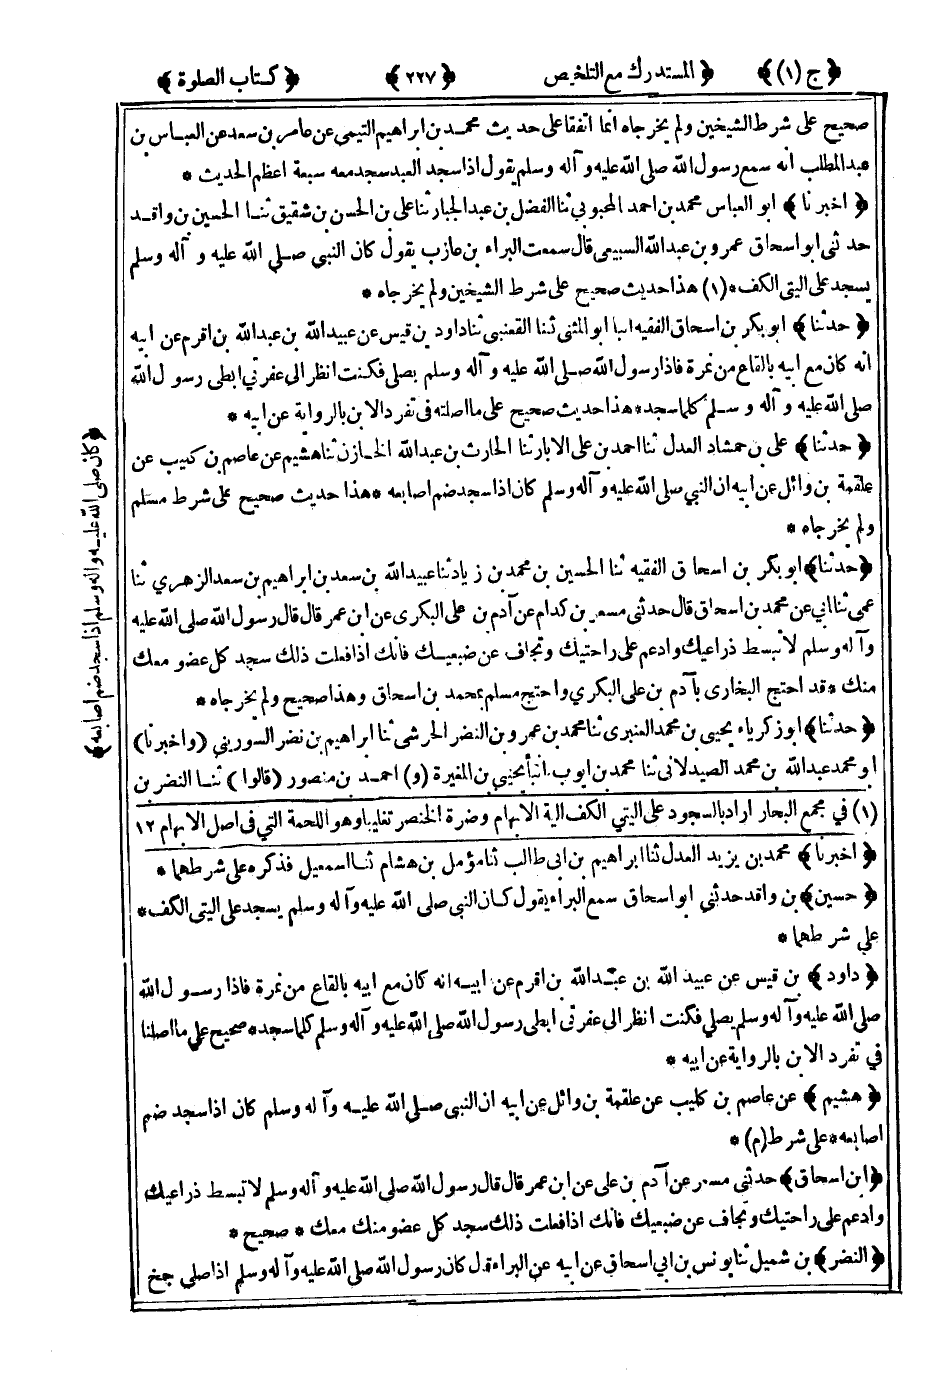 ﴿ ج (١) ﴾ ﴿ المستدرك مع التلخيص ﴿ ٢٢٧ ﴾ ﴿ كتاب الصلوة ﴾
صحيح على شرط الشيخين ولم يخرجاه انما اتفقا على حديث محمد بن ابراهيم التيمى عن عامر بن سعد عن العباس بن
عبد المطلب انه سمع رسول الله صلى الله عليه و آله وسلم يقول اذا سجد العبد سجد معه سبعة اعظم الحديث *
﴿ اخبرنا ﴾ ابو العباس محمد بن احمد المحبوبي ثنا الفضل بن عبد الجبار ثنا على بن الحسن بن شقيق ثنا الحسين بن واقد
حدثنى ابو اسحاق عمرو بن عبد الله السبيعى قال سمعت البراء بن عازب يقول كان النبي صلى الله عليه و آله وسلم
يسجد على اليتى الكف * (١) هذا حديث صحيح على شرط الشيخين ولم يخرجاه *
﴿ حدثنا ﴾ ابو بكر بن اسحاق الفقيه انبا ابو المثنى ثنا القعنبى ثنا داود بن قيس عن عبيد الله بن عبد الله بن اقرم عن ابيه
انه كان مع ابيه بالقاع من نمرة فاذا رسول الله صلى الله عليه و آله وسلم يصلى فكنت انظر الى عفرتي ابطى رسول الله
صلى الله عليه و آله و سلم كلما سجد * هذا حديث صحيح على ما اصلته فى تفرد الابن بالرواية عن ابيه *
﴿ حدثنا ﴾ على بن حمشاد العدل ثنا احمد بن على الابار ثنا الحارث بن عبد الله الخازن ثنا هشيم عن عاصم بن كليب عن
علقمة بن وائل عن ابيه ان النبي صلى الله عليه و آله وسلم كان اذا سجد ضم اصابعه * هذا حديث صحيح على شرط مسلم
ولم يخرجاه *
﴿ حدثنا ﴾ ابو بكر بن اسحاق الفقيه ثنا الحسين بن محمد بن زياد ثنا عبيد الله بن سعد بن ابراهيم بن سعد الزهري ثنا
عمى ثنا ابي عن محمد بن اسحاق قال حدثنى مسعر بن كدام عن آدم بن على البكرى عن ابن عمر قال قال رسول الله صلى الله عليه
و آله وسلم لا تبسط ذراعيك وادعم على راحتيك وتجاف عن ضبعيك فانك اذا فعلت ذلك سجد كل عضو معك
منك * قد احتج البخارى بآدم بن على البكري واحتج مسلم بمحمد بن اسحاق وهذا صحيح ولم يخرجاه *
﴿ حدثنا ﴾ ابو زكرياء يحيى بن محمد العنبرى ثنا محمد بن عمرو بن النضر الحرشى ثنا ابراهيم بن نضر السوريني (واخبرنا)
ابو محمد عبد الله بن محمد الصيدلانى ثنا محمد بن ايوب انبأ يحيى بن المغيرة (و) احمد بن منصور (قالوا) ثنا النضر بن
(١) في مجمع البحار اراد بالسجود على اليتى الكف الية الابهام وضرة الخنصر تغليبا وهو اللحمة التي فى اصل الابهام ١٢
﴿ اخبرنا ﴾ محمد بن يزيد العدل ثنا ابراهيم بن ابى طالب ثنا مؤمل بن هشام ثنا اسمعيل فذكره على شرطهما *
﴿ حسين ﴾ بن واقد حدثني ابو اسحاق سمع البراء يقول كان النبى صلى الله عليه و آله وسلم يسجد على اليتى الكف *
على شرطهما *
﴿ داود ﴾ بن قيس عن عبيد الله بن عبد الله بن اقرم عن ابيه انه كان مع ابيه بالقاع من نمرة فاذا رسول الله
صلى الله عليه و آله وسلم يصلي فكنت انظر الى عفرتى ابطى رسول الله صلى الله عليه و آله وسلم كلما سجد * صحيح على ما اصلنا
في تفرد الابن بالرواية عن ابيه *
﴿ هشيم ﴾ عن عاصم بن كليب عن علقمة بن وائل عن ابيه ان النبى صلى الله عليه و آله وسلم كان اذا سجد ضم
اصابعه * على شرط (م) *
﴿ ابن اسحاق ﴾ حدثنى مسعر عن آدم بن على عن ابن عمر قال قال رسول الله صلى الله عليه و آله وسلم لا تبسط ذراعيك
وادعم على راحتيك وتجاف عن ضبعيك فانك اذا فعلت ذلك سجد كل عضو منك معك * صحيح *
﴿ النضر ﴾ بن شميل ثنا يونس بن ابي اسحاق عن ابيه عن البراء قال كان رسول الله صلى الله عليه و آله وسلم اذا صلي جخ
﴿ كان صلى الله عليه و اله وسلم اذا سجد ضم اصابعه ﴾